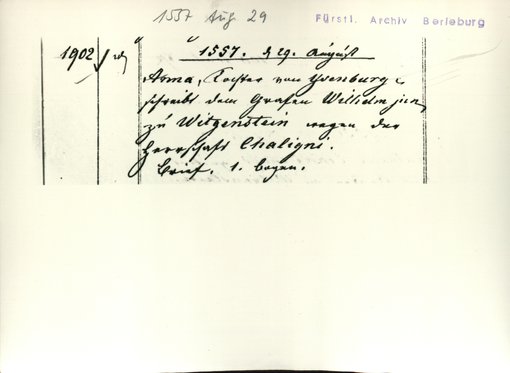 1557 Aug 29
Fürstl. Archiv Berleburg
1902
1557. d 29. August
Anna, Tochter von Ysenburg
schreibt dem Grafen Wilhelm jun
zu Witgenstein wegen der
Herrschaft Chaligni.
Brief. 1. bogen.